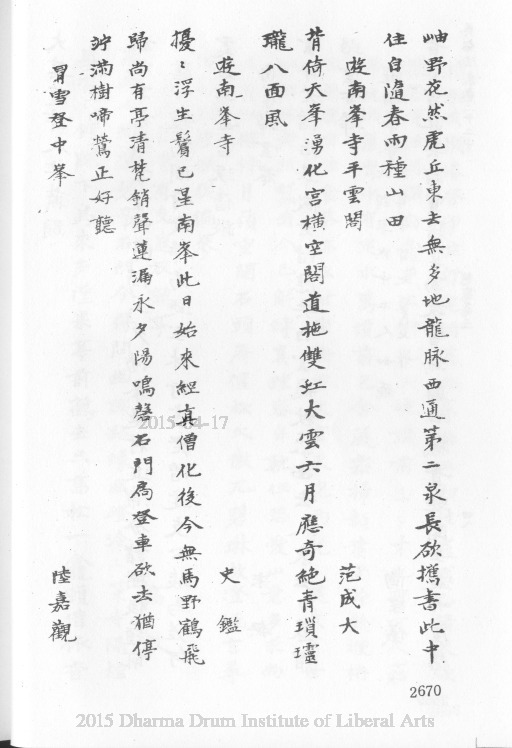 岫野花然虎丘東去無多地龍脉西通第二泉長欲攜書此中
住自隨春雨種山田
遊南峯寺平雲閣 范成大
背倚天峯湧化宮橫空閣道拖雙虹大雲六月應奇絶青瑣瓏
瓏八面風
遊南峯寺 史鑑
擾〻浮生鬢已星南峯此日始來經真僧化後今無馬野鶴飛
歸尚有亭清梵銷聲蓮漏永夕陽鳴磬石門扃登車欲去猶停
竚滿樹啼鶯正好聽
冒雪登中峯 陸嘉觀
2670
2015-04-17
2015 Dharma Drum Institute of Liberal Arts